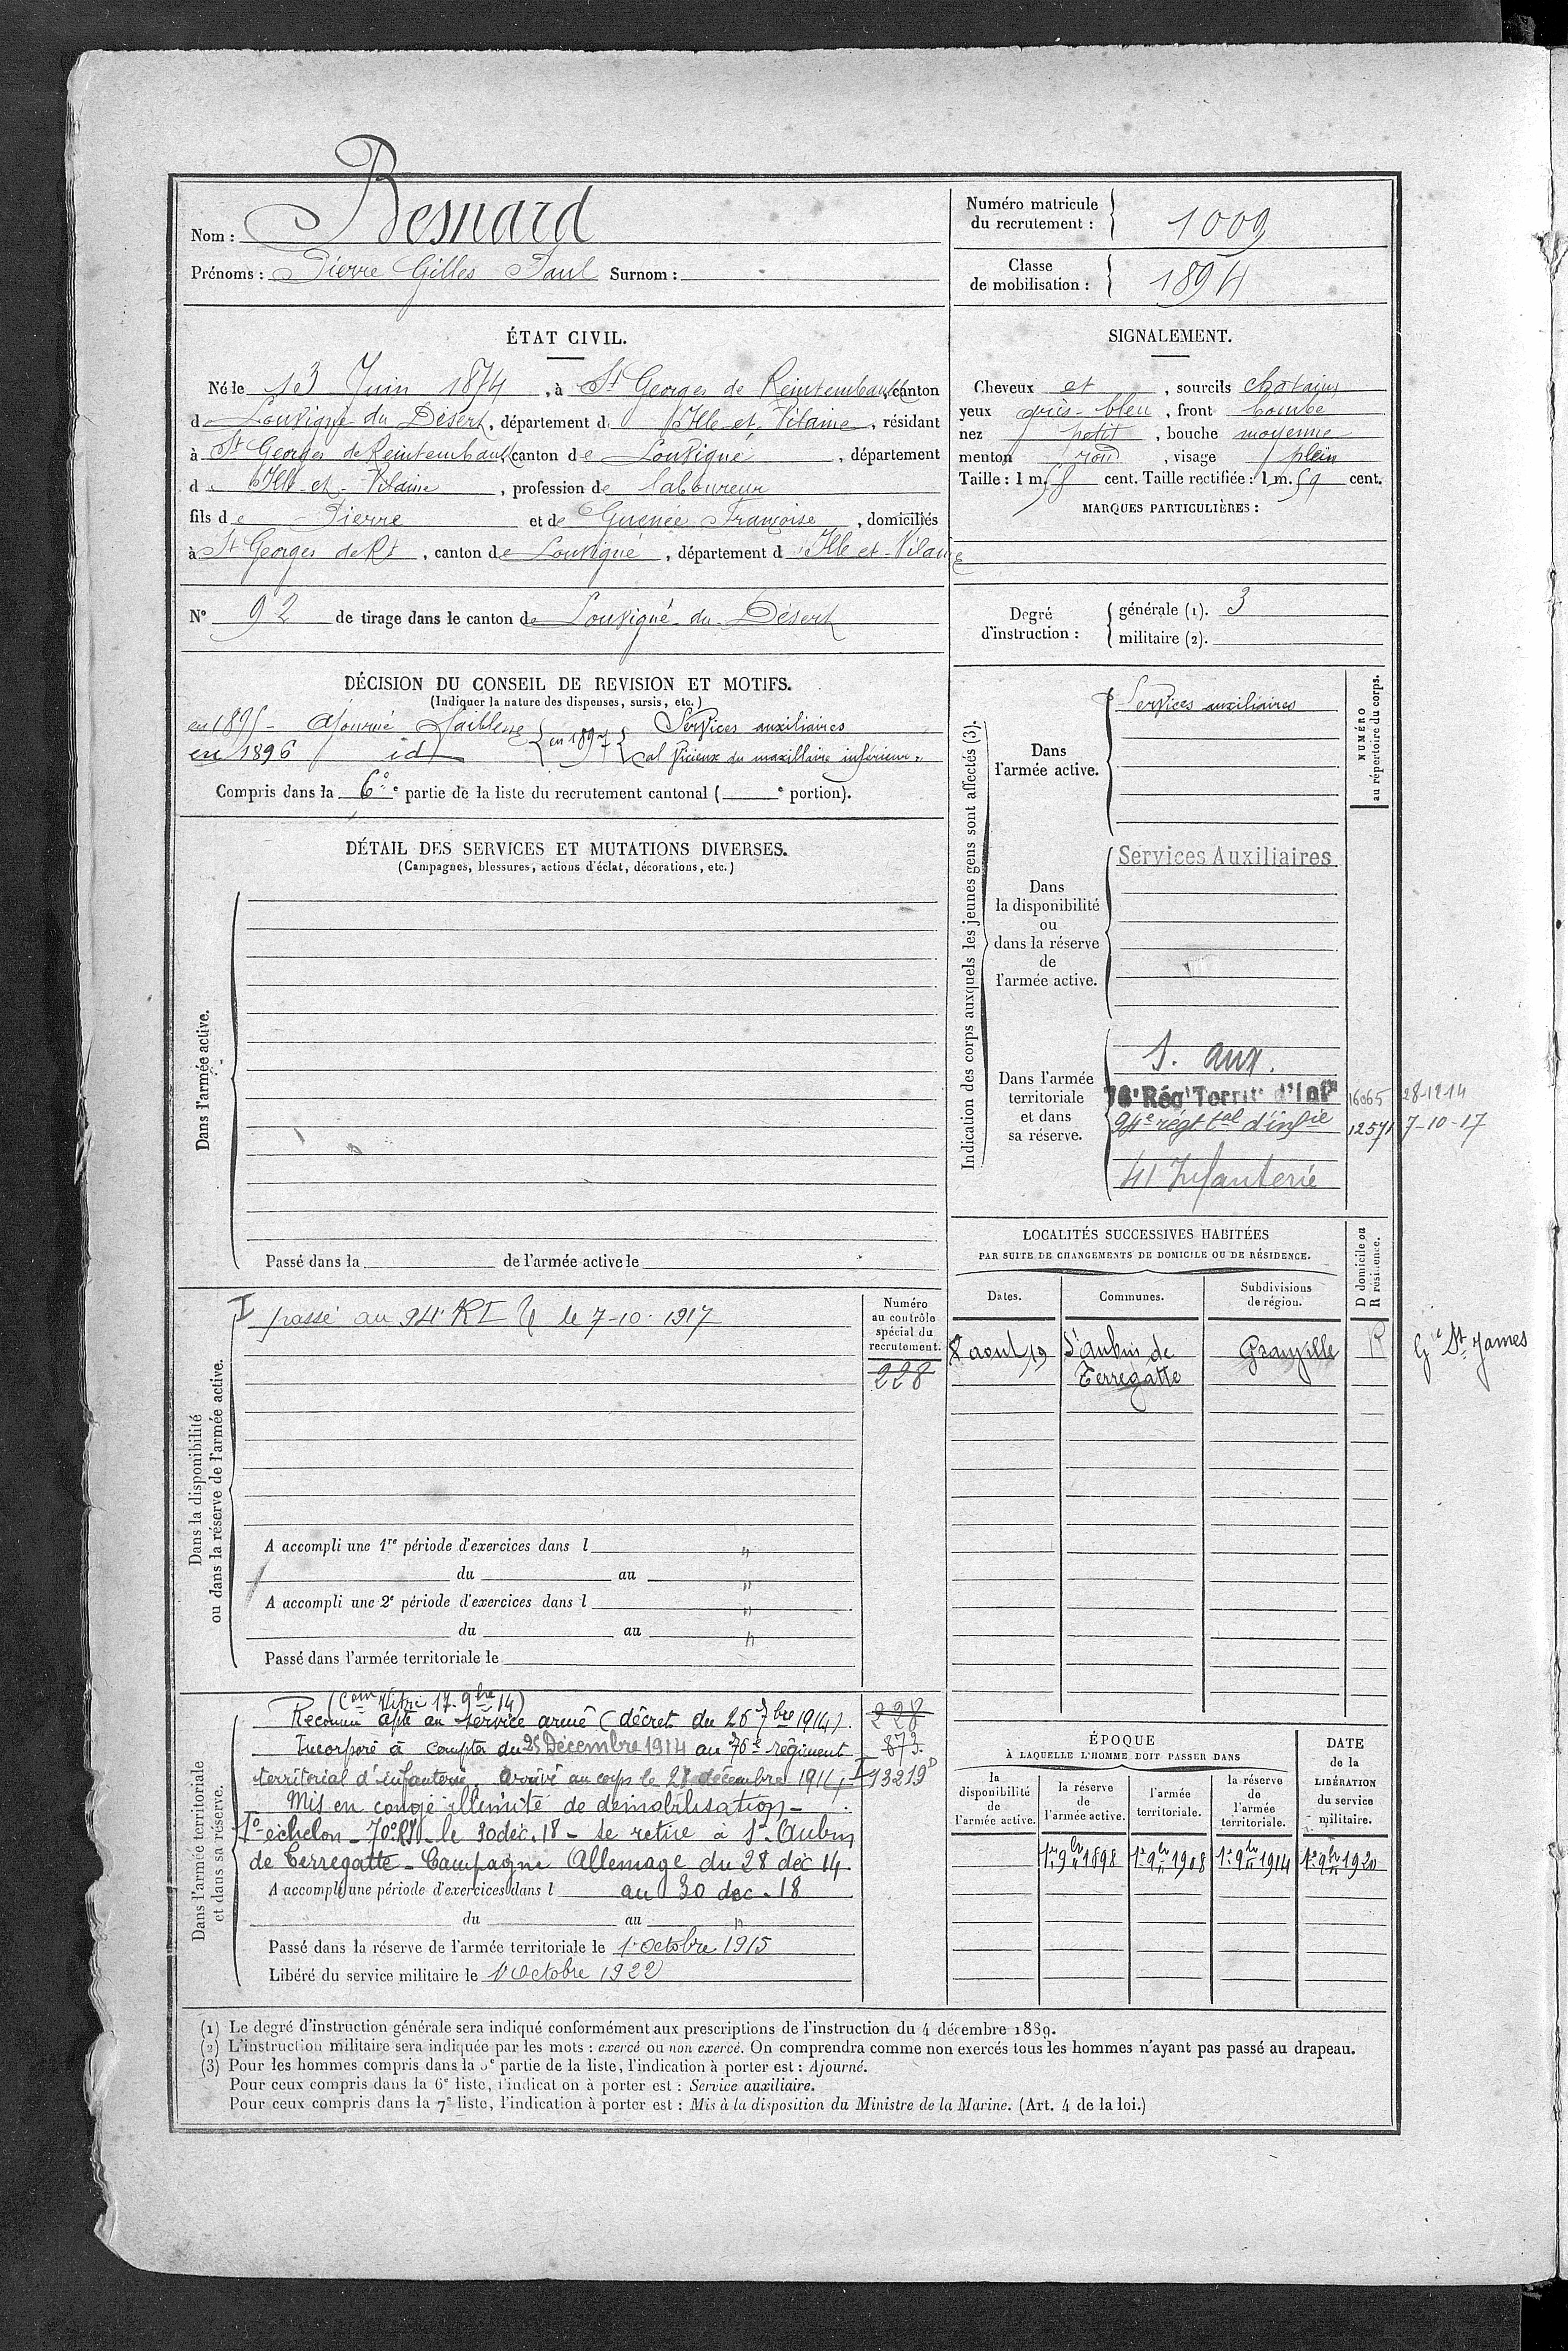 Nom : Besnard
Prénoms : Pierre Gilles Paul Surnom :
Numéro matricule du recrutement : 1009
Classe de mobilisation : 1894
ÉTAT CIVIL.
Né le 13 Juin 1874, à St Georges de Reintembault, canton
de Louvigné du Désert, département d'Ille et Vilaine, résidant
à St Georges de Reintembault, canton de Louvigné, département
d'Ille et Vilaine, profession de laboureur
fils de Pierre et de Guenée Françoise, domiciliés
à St Georges de Rt, canton de Louvigné, département d'Ille et Vilaine
N° 92 de tirage dans le canton de Louvigné du Désert
SIGNALEMENT.
Cheveux et, sourcils chatains
yeux gris-bleu, front bombé
nez petit, bouche moyenne
menton rond, visage plein
Taille : 1 m. 58 cent. Taille rectifiée : 1 m. 59 cent.
MARQUES PARTICULIÈRES :
Degré d'instruction : générale (1). 3
militaire (2).
DÉCISION DU CONSEIL DE REVISION ET MOTIFS.
(Indiquer la nature des dispenses, sursis, etc.)
en 1895 - Ajourné faiblesse
en 1896 id
en 1897 Services auxiliaires
Cal vicieux du maxillaire inférieur.
Compris dans la 6e e partie de la liste du recrutement cantonal ( e portion).
DÉTAIL DES SERVICES ET MUTATIONS DIVERSES.
(Campagnes, blessures, actions d'éclat, décorations, etc.)
Dans l'armée active.
Passé dans la de l'armée active le
Indication des corps auxquels les jeunes gens sont affectés (3).
NUMÉRO au répertoire du corps.
Dans l'armée active.
Services auxiliaires
Dans la disponibilité ou dans la réserve de l'armée active.
Services Auxiliaires
Dans l'armée territoriale et dans sa réserve.
S. aux.
76e Régt Territ. d'Infie 16065 28-12-14
94e régt tal d'infie 12571 7-10-17
41 Infanterie
LOCALITÉS SUCCESSIVES HABITÉES
PAR SUITE DE CHANGEMENTS DE DOMICILE OU DE RÉSIDENCE.
Dates. Communes. Subdivisions de région. D domicile ou R résidence.
8 aout 19 St Aubin de Terregatte Granville R
St James
Dans la disponibilité ou dans la réserve de l'armée active.
passé au 94e RI le 7-10-1917
Numéro au contrôle spécial du recrutement.
228
A accompli une 1re période d'exercices dans l
du au
A accompli une 2e période d'exercices dans l
du au
Passé dans l'armée territoriale le
Dans l'armée territoriale et dans sa réserve.
(Com Vitré 17-9bre 14)
Reconnu apte au service armé (décret du 26 7bre 1914). 228
Incorporé à compter du 25 Décembre 1914 au 76e régiment 873.
territorial d'infanterie. Arrivé au corps le 28 décembre 1914 13219
Mis en congé illimité de démobilisation -
1er échelon - 70e RI le 30 déc. 18 - se retire à St Aubin
de Terregatte - Campagne Allemage du 28 déc 14
A accompli une période d'exercices dans l au 30 dec. 18
du au
Passé dans la réserve de l'armée territoriale le 1 Octobre 1915
Libéré du service militaire le 1 Octobre 1922
ÉPOQUE
À LAQUELLE L'HOMME DOIT PASSER DANS
la disponibilité de l'armée active.
la réserve de l'armée active.
l'armée territoriale.
la réserve de l'armée territoriale.
DATE de la LIBÉRATION du service militaire.
1er 9bre 1898 1er 9bre 1908 1er 9bre 1914 1er 9bre 1920
(1) Le degré d'instruction générale sera indiqué conformément aux prescriptions de l'instruction du 4 décembre 1889.
(2) L'instruction militaire sera indiquée par les mots : exercé ou non exercé. On comprendra comme non exercés tous les hommes n'ayant pas passé au drapeau.
(3) Pour les hommes compris dans la 5e partie de la liste, l'indication à porter est : Ajourné.
Pour ceux compris dans la 6e liste, l'indication à porter est : Service auxiliaire.
Pour ceux compris dans la 7e liste, l'indication à porter est : Mis à la disposition du Ministre de la Marine. (Art. 4 de la loi.)